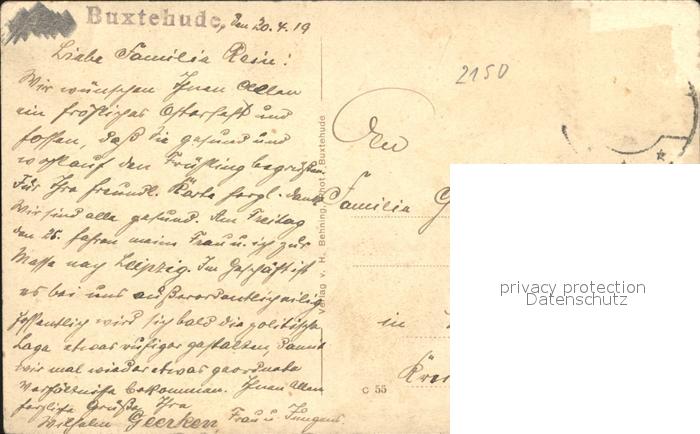 Buxtehude, den 20.4.19
Liebe Familie Rein!
Wir wünschen Ihnen Allen
ein fröhliches Osterfest und
hoffen, daß Sie gesund und
wohlauf den Frühling begrüßen.
Für Ihre freundl. Karte herzl. Dank.
Wir sind alle gesund. Am Freitag
den 25. fahren meine Frau u. ich zur
Messe nach Leipzig. Im Geschäft ist
es bei uns außerordentlich eilig.
Hoffentlich wird sich bald die politische
Lage etwas ruhiger gestalten, damit
wir mal wieder etwas geordnete
Verhältnisse bekommen. Ihnen Allen
herzliche Grüße, Ihre
Wilhelm Geerken, Frau u. Jungens.
Verlag v. H. Behning, Buxtehude.
2150
An
Familie G
in
Kre
C 55
privacy protection
Datenschutz